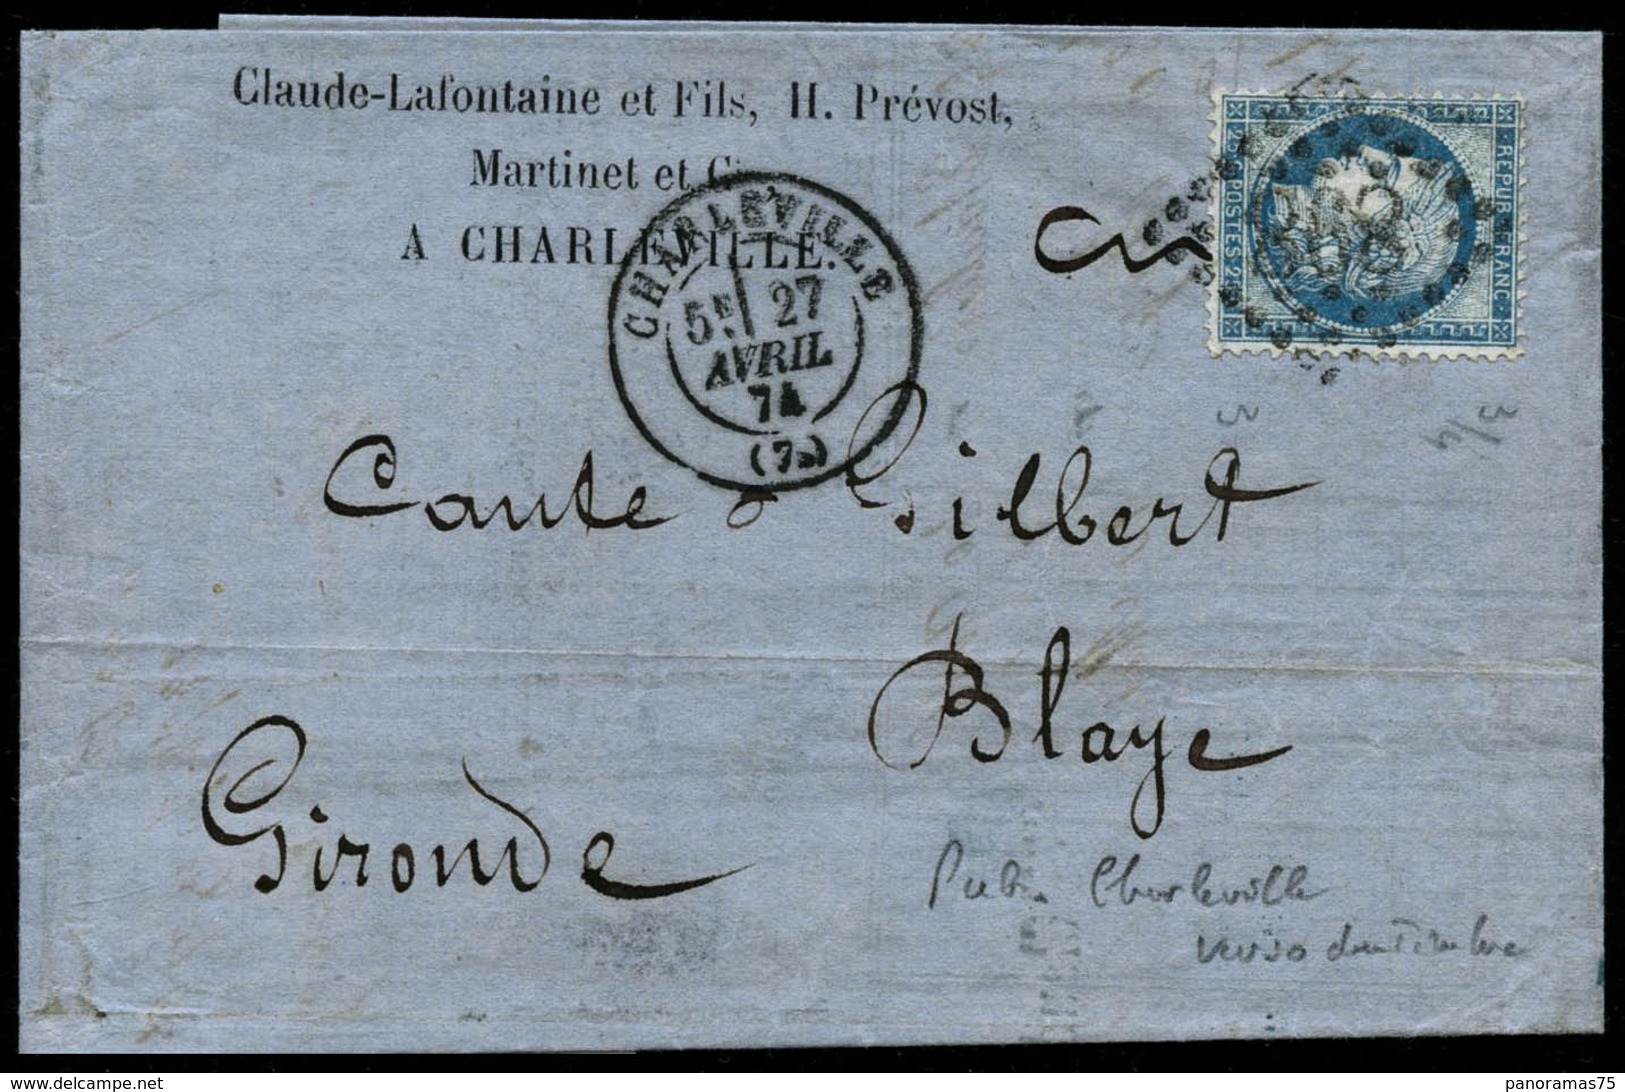 Claude-Lafontaine et Fils, H. Prévost,
Martinet et C
A CHARLEVILLE.
CHARLEVILLE
5E 27
AVRIL
74
REPUB FRANC
25 C POSTES 25
Caute & Gilbert
Blaye
Gironde
3
3/4
Pub. Charleville
verso du Timbre
www.delcampe.net
panoramas75